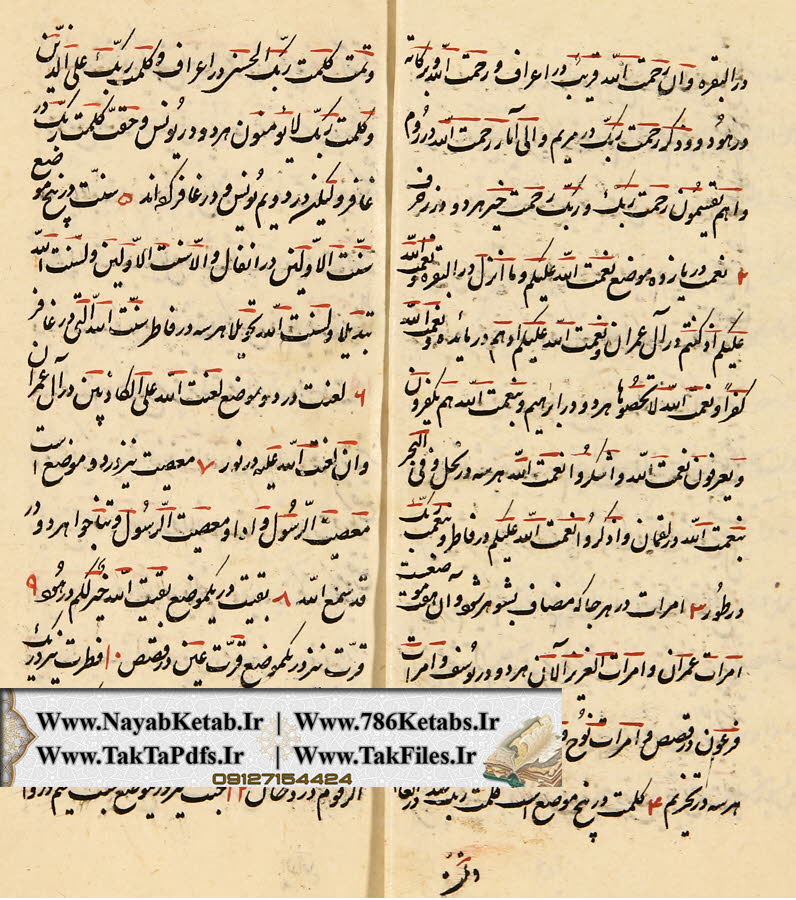 در البقره و ان رحمت الله قریب در اعراف و رحمت الله و برکاته
در هود و ذکر رحمت ربک در مریم و الی آثار رحمت الله در روم
و اهم یقسمون رحمت ربک و رحمت ربک خیر هر دو در زخرف
۲ نعمت در یازده موضع نعمت الله علیکم و ما انزل در البقره و نعمت الله
علیکم اذ کنتم در آل عمران و نعمت الله علیکم اذ هم در مائده و نعمت الله
کفرا و نعمت الله لا تحصوها هر دو در ابراهیم و بنعمت الله هم یکفرون
و یعرفون نعمت الله و اشکروا نعمت الله هر سه در نحل و فی البحر
بنعمت الله در لقمان و اذکروا نعمت الله علیکم در فاطر و بنعمت ربک
در طور ۳ امرات در هر جا که مضاف بشوهر شود و آن هفت موضعست
امرات عمران و امرات العزیز الآن هر دو در یوسف و امرات
فرعون در قصص و امرات نوح و
هر سه در تحریم ۴ کلمت در پنج موضع است کلمت ربک
و تمت
و تمت کلمت ربک الحسنی در اعراف و کلمت ربک علی الذین
و کلمت ربک لا یؤمنون هر دو در یونس و حقت کلمت ربک در
غافر و لیکن در دویم یونس و در غافر که اند ۵ سنت در پنج موضع
سنت الاولین در انفال و الا سنت الاولین و لسنت الله
تبدیلا و لسنت الله تحویلا هر سه در فاطر سنت الله التی در غافر
۶ لعنت در دو موضع لعنت الله علی الکاذبین در آل عمران
و ان لعنت الله علیه در نور ۷ معصیت نیز در دو موضع است
معصیت الرسول و اذا و معصیت الرسول و تناجوا هر دو در
قد سمع الله ۸ بقیت در یکموضع بقیت الله خیر لکم در هود ۹
قرت نیز در یکموضع قرت عین در قصص ۱۰ فطرت نیز در یک
الزقوم در دخان ۱۲ جنت نیز در یکموضع جنت نعیم در وا
Www.NayabKetab.Ir | Www.786Ketabs.Ir
Www.TakTaPdfs.Ir | Www.TakFiles.Ir
09127154424